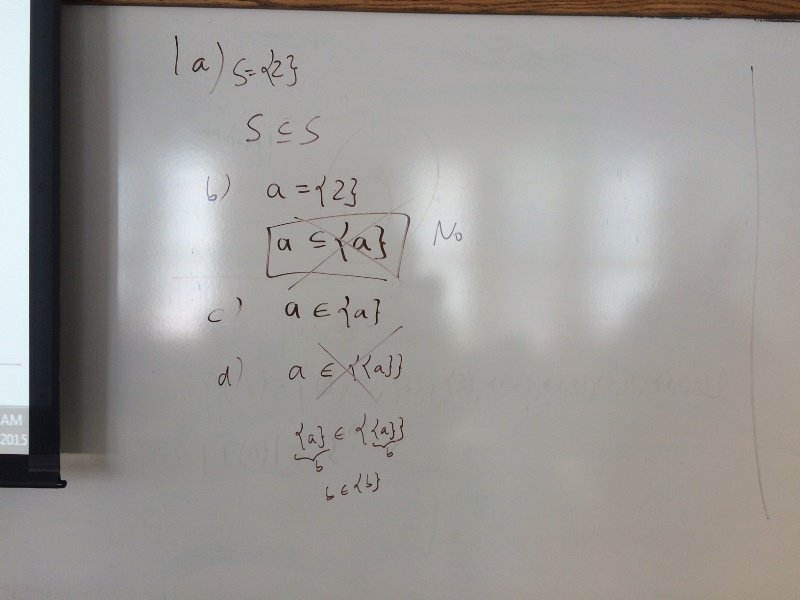 1a) S={2}
S ⊆ S
b) a={2}
a ⊆ {a} No
c) a ∈ {a}
d) a ∈ {{a}}
{a} ∈ {{a}}
b b
b ∈ {b}
AM
2015